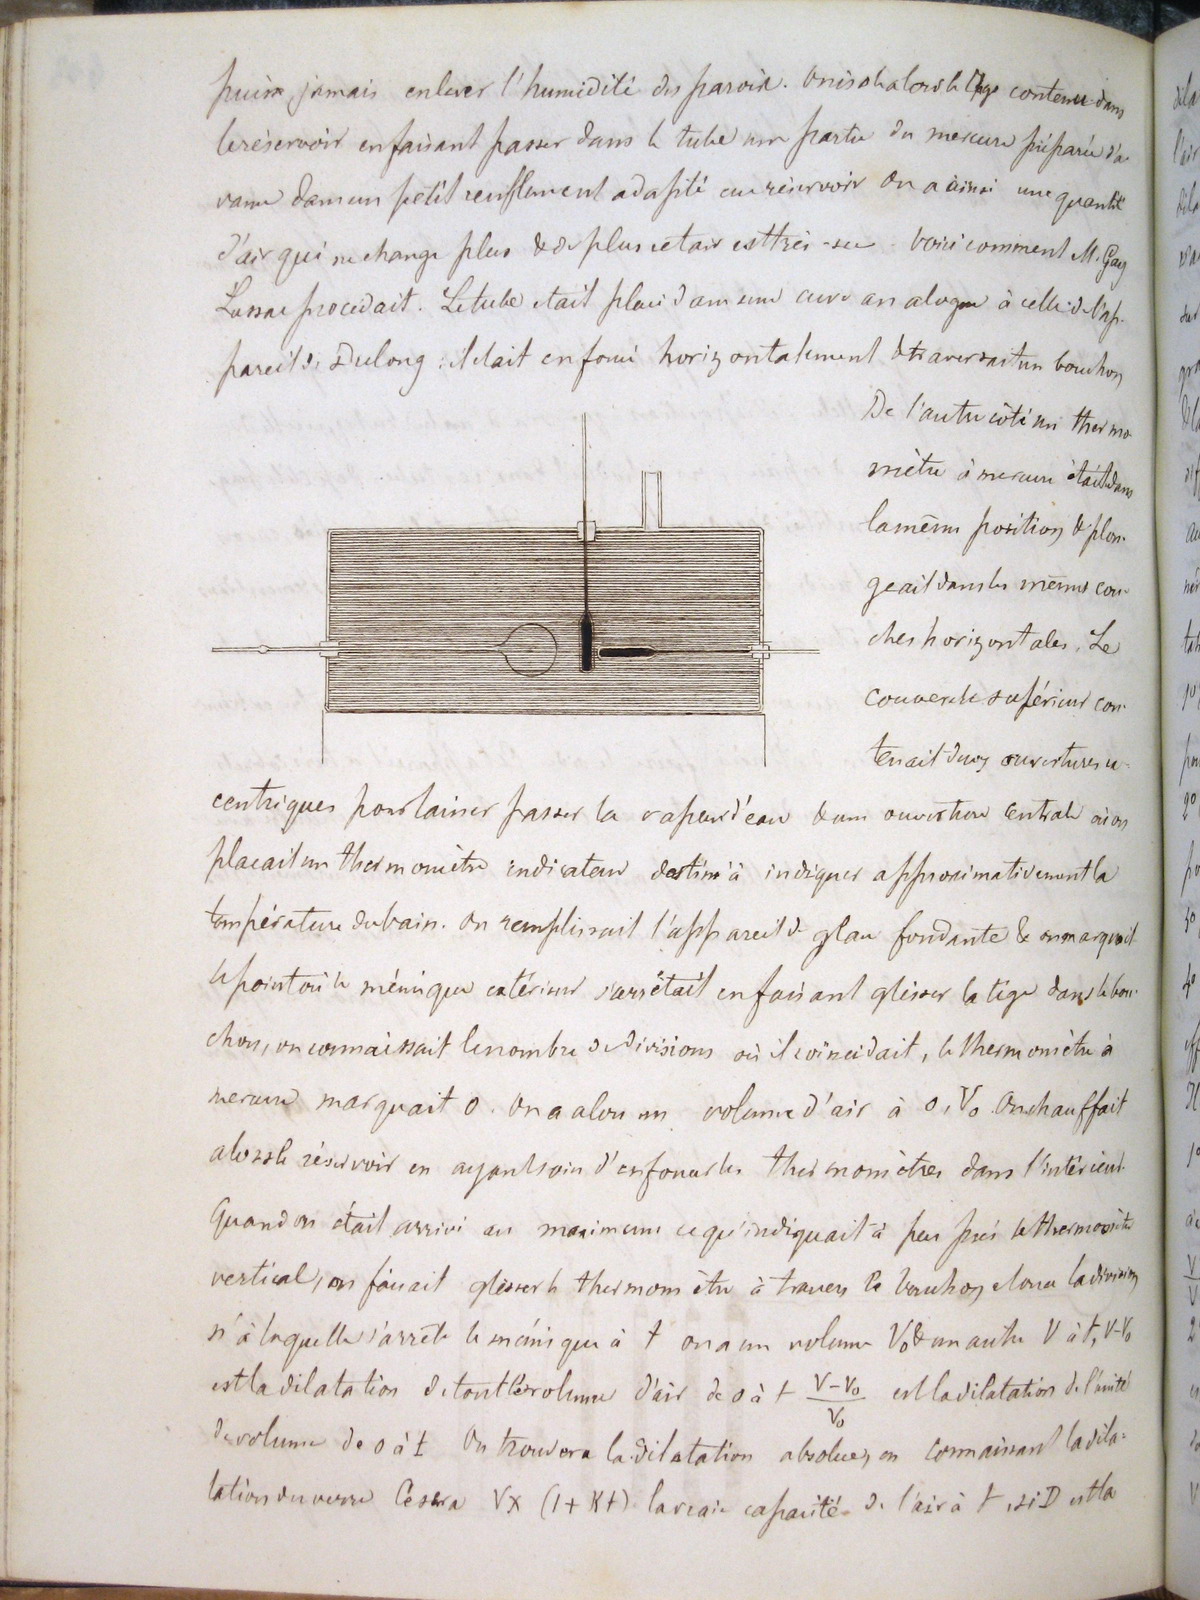 puisse jamais enlever l'humidité des parois. On isole alors le gaz contenu dans
le réservoir en faisant passer dans le tube une partie du mercure préparée d'a-
vance dans un petit renflement adapté au réservoir On a ainsi une quantité
d'air qui ne change plus & de plus cet air est très-sec. Voici comment M. Gay
Lussac procédait. Le tube était placé dans une cuve analogue à celle de l'ap-
pareil de Dulong : il était enfoncé horizontalement & traversait un bouchon
De l'autre côté un thermo-
mètre à mercure était dans
la même position & plon-
geait dans les mêmes cou-
ches horizontales. Le
couvercle supérieur con-
tenait deux ouvertures ex-
centriques pour laisser passer la vapeur d'eau & une ouverture centrale où on
placait un thermomètre indicateur destiné à indiquer approximativement la
température du bain. On remplissait l'appareil de glace fondante & on marquait
le point où le ménisque extérieur s'arrêtait en faisant glisser la tige dans le bou-
chon, on connaissait le nombre de divisions où il coïncidait, le thermomètre à
mercure marquait 0. On a alors un volume d'air à 0, V₀ On chauffait
alors le réservoir en ayant soin d'enfoncer les thermomètres dans l'intérieur.
Quand on était arrivé au maximum ce qu'indiquait à peu près le thermomètre
vertical, on faisait glisser le thermomètre à travers le bouchon & on a la division
n' à laquelle s'arrête le ménisque à t on a un volume V₀ & un autre V à t, V-V₀
est la dilatation de tout le volume d'air de 0 à t (V-V₀)/V₀ est la dilatation de l'unité
de volume de 0 à t On trouvera la dilatation absolue, en connaissant la dila-
tation du verre Ce sera V × (1 + Kt) la vraie capacité de l'air à t, si D est la